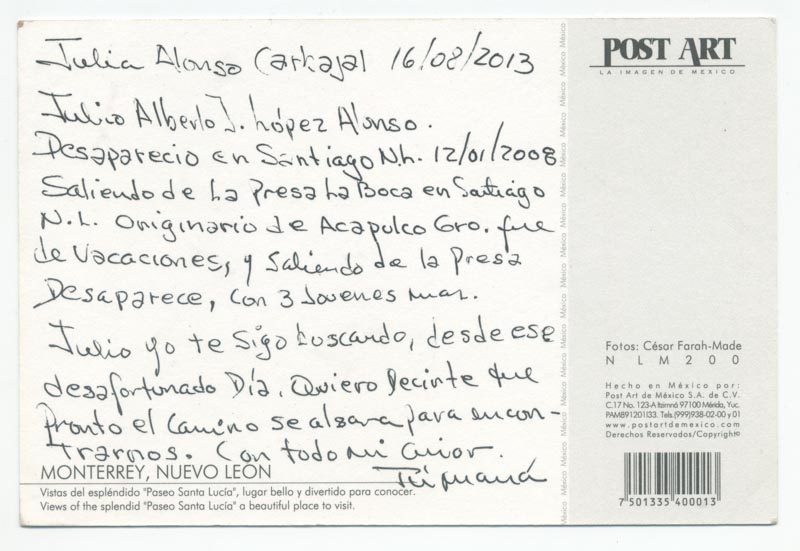 Julia Alonso Carbajal 16/08/2013
Julio Alberto J. López Alonso.
Desaparecio en Santiago N.L. 12/01/2008
Saliendo de La Presa La Boca en Santiago
N.L. Originario de Acapulco Gro. fue
de Vacaciones, y Saliendo de la Presa
Desaparece, con 3 Jovenes mas.
Julio yo te sigo buscando, desde ese
desafortunado Día. Quiero Decirte que
Pronto el Camino se alsara para encon-
trarnos. Con todo mi amor.
Tú mamá
MONTERREY, NUEVO LEON
Vistas del espléndido "Paseo Santa Lucía", lugar bello y divertido para conocer.
Views of the splendid "Paseo Santa Lucía" a beautiful place to visit.
México México México México México México México México México México México México México México México México
POST ART
LA IMAGEN DE MEXICO
Fotos: César Farah-Made
NLM200
Hecho en México por:
Post Art de México S.A. de C.V.
C.17 No. 123-A Itzimná 97100 Mérida, Yuc.
PAM891201I33. Tels.(999)938-02-00 y 01
www.postartdemexico.com
Derechos Reservados/Copyright©
7 501335 400013